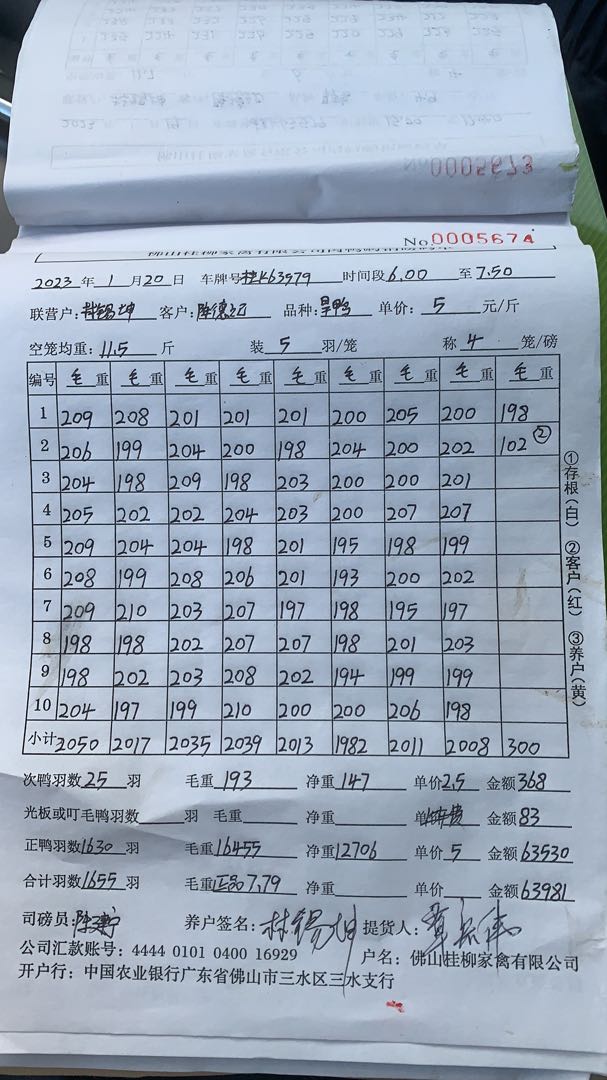 No 0005673
No. 0005674
2023 年 1 月 20 日 车牌号 桂K63979 时间段 6.00 至 7.50
联营户: 林锡坤 客户: 品种: 单价: 5 元/斤
空笼均重: 11.5 斤 装 5 羽/笼 称 4 笼/磅
编号 毛重 毛重 毛重 毛重 毛重 毛重 毛重 毛重 毛重
1 209 208 201 201 201 200 205 200 198
2 206 199 204 200 198 204 200 202 102 ②
3 204 198 209 198 203 200 200 201
4 205 202 202 204 203 200 207 207
5 209 204 204 198 201 195 198 199
6 208 199 208 206 201 193 200 202
7 209 210 203 207 197 198 195 197
8 198 198 202 207 207 198 201 203
9 198 202 203 208 202 194 199 199
10 204 197 199 210 200 200 206 198
小计 2050 2017 2035 2039 2013 1982 2011 2008 300
①存根(白) ②客户(红) ③养户(黄)
次鸭羽数 25 羽 毛重 193 净重 147 单价 2.5 金额 368
光板或叮毛鸭羽数 羽 毛重 净重 金额 83
正鸭羽数 1630 羽 毛重 16455 净重 12706 单价 5 金额 63530
合计羽数 1655 羽 毛重 正品7.79 净重 单价 金额 63981
司磅员: 养户签名: 林锡坤 提货人:
公司汇款账号: 4444 0101 0400 16929 户名: 佛山桂柳家禽有限公司
开户行: 中国农业银行广东省佛山市三水区三水支行